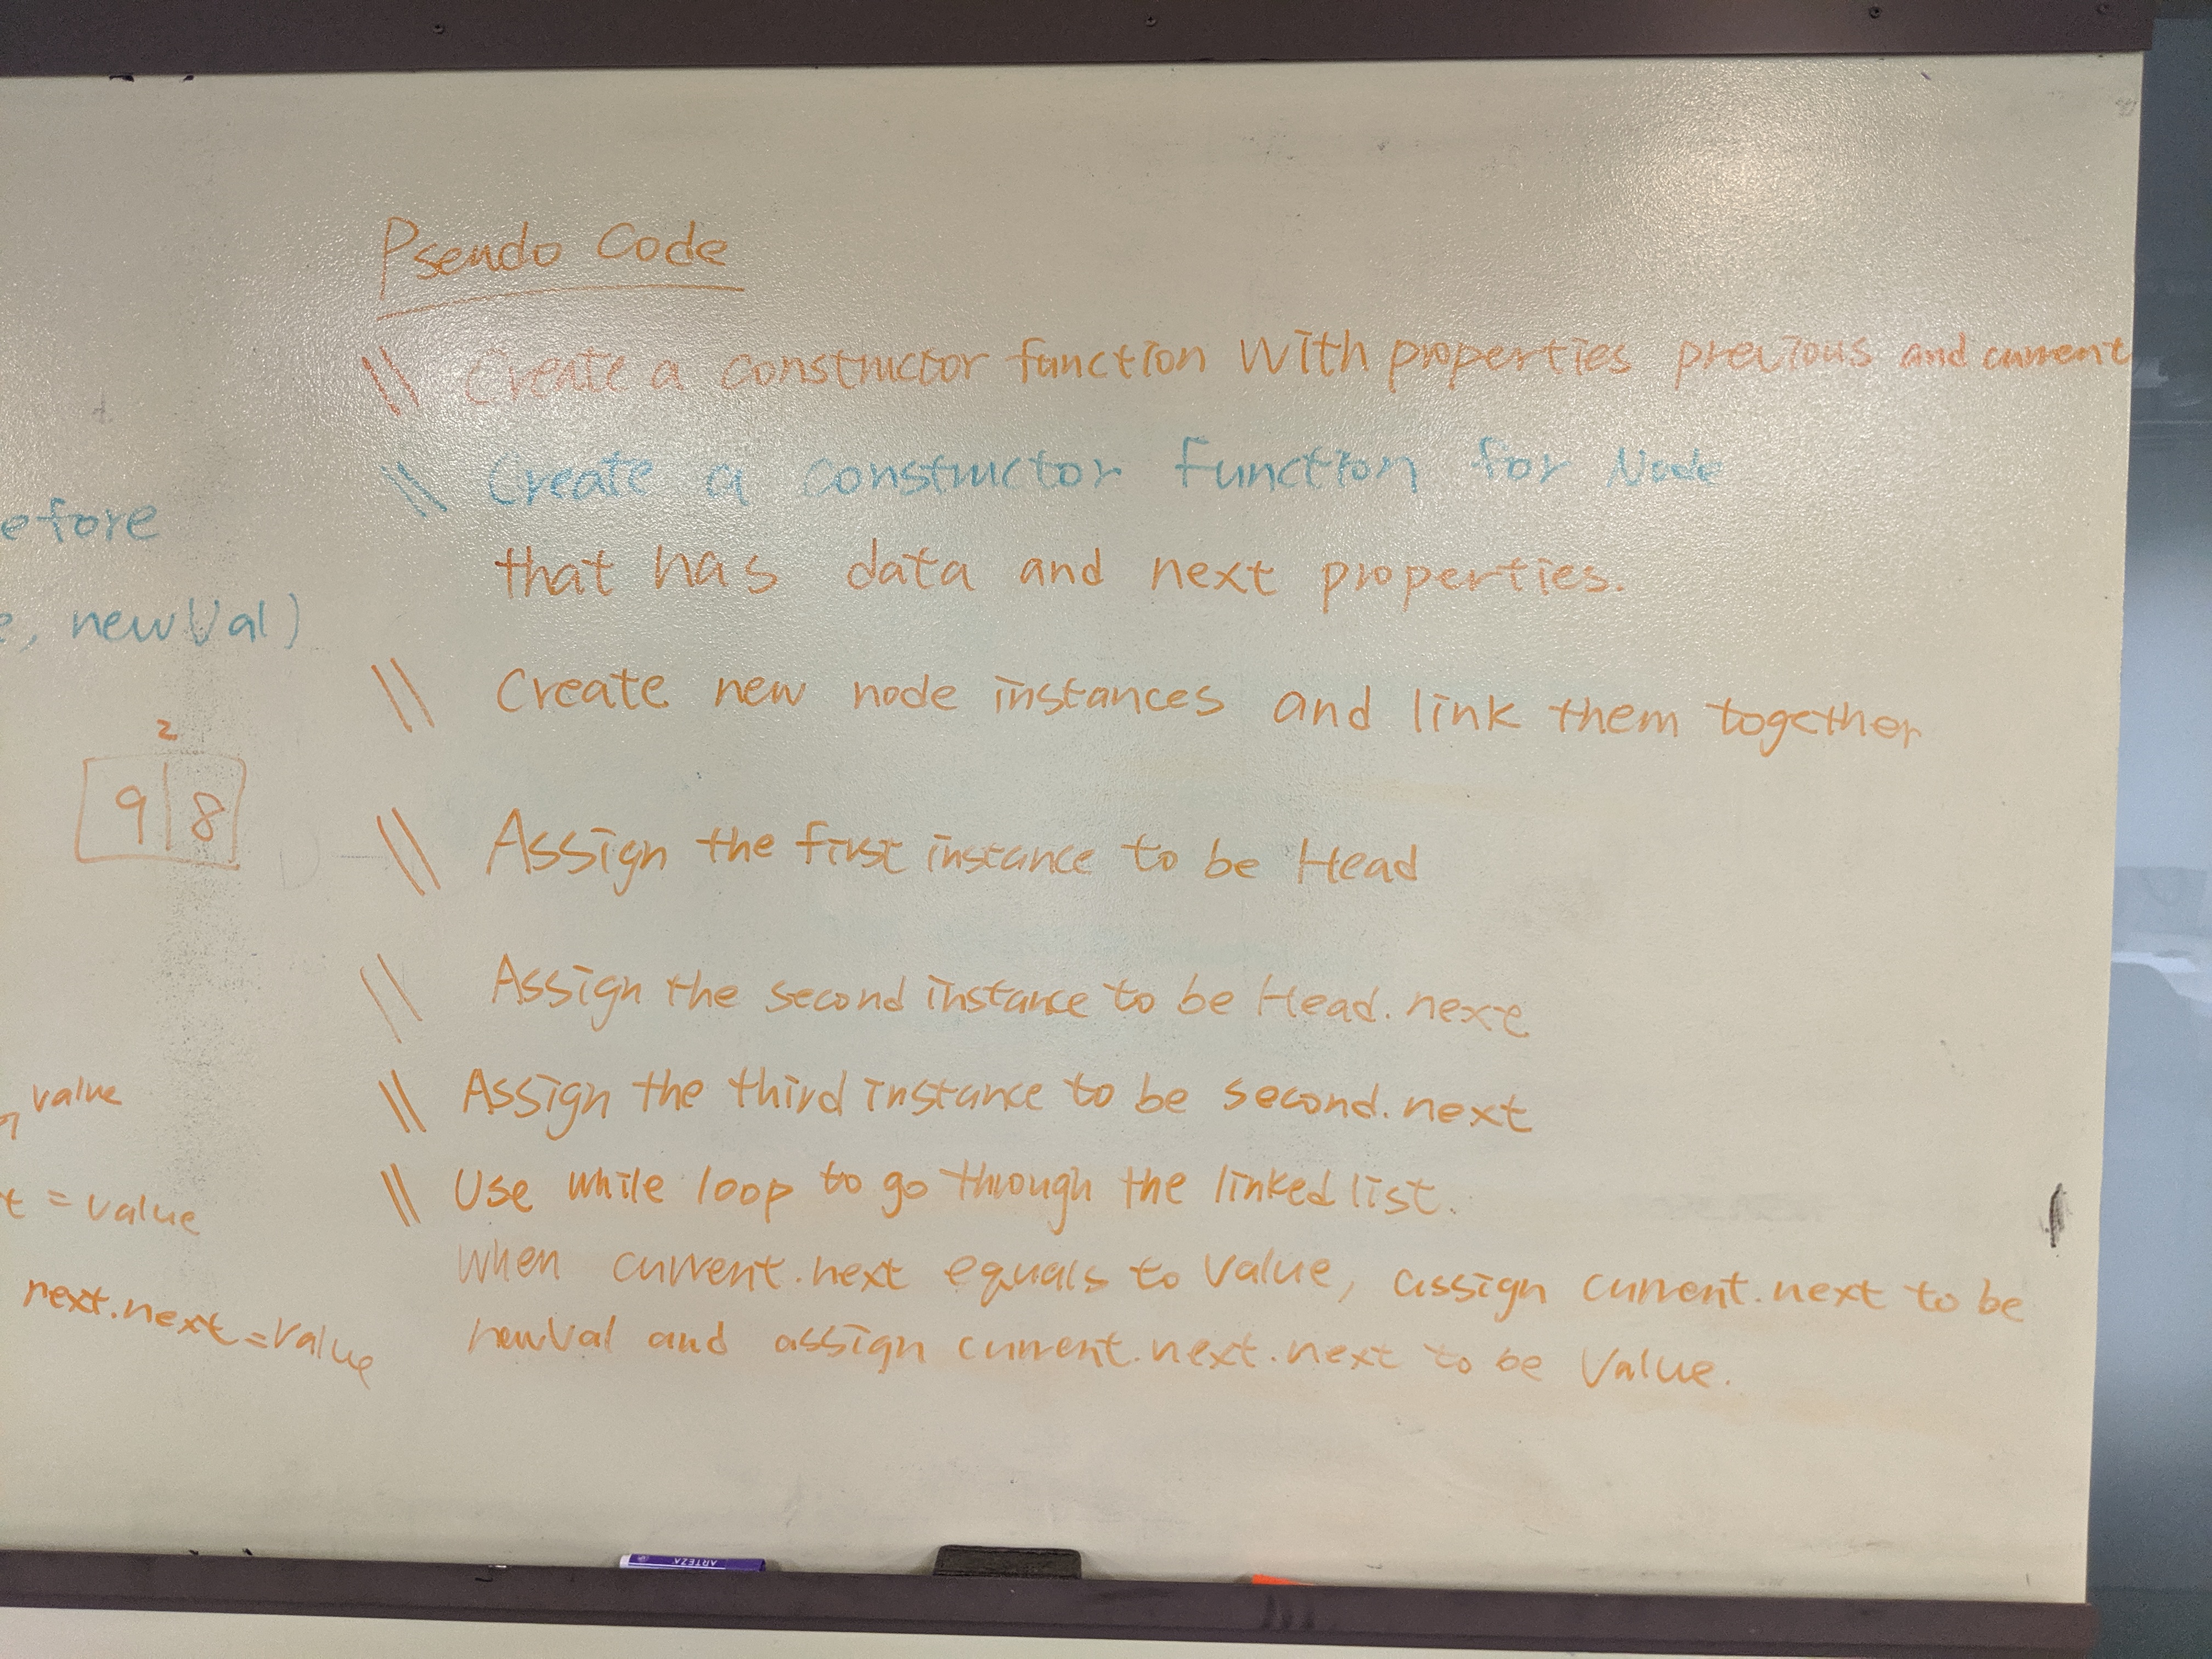 Psendo Code
\\ Create a constructor function with properties previous and current
\\ Create a constructor function for Node
that has data and next properties.
\\ Create new node instances and link them together
\\ Assign the first instance to be Head
\\ Assign the second instance to be Head.next
\\ Assign the third instance to be second.next
\\ Use while loop to go through the linked list.
when current.next equals to value, assign current.next to be
newVal and assign current.next.next to be Value.
efore
e, newVal)
2
9 8
value
t = value
next.next = Value
ARTEZA